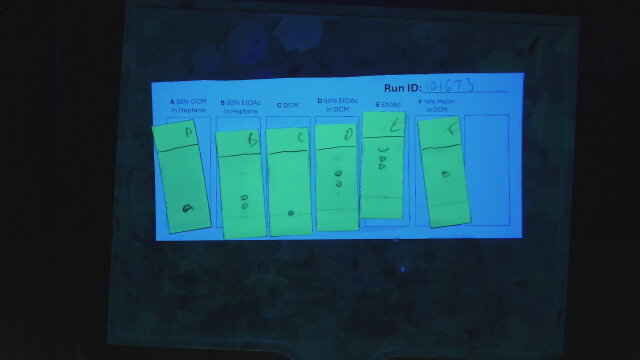 Run ID: 101673
A 50% DCM
in Heptane
B 50% EtOAc
in Heptane
C DCM
D 50% EtOAc
in DCM
E EtOAc
F 10% MeOH
in DCM
B
C
D
E
F